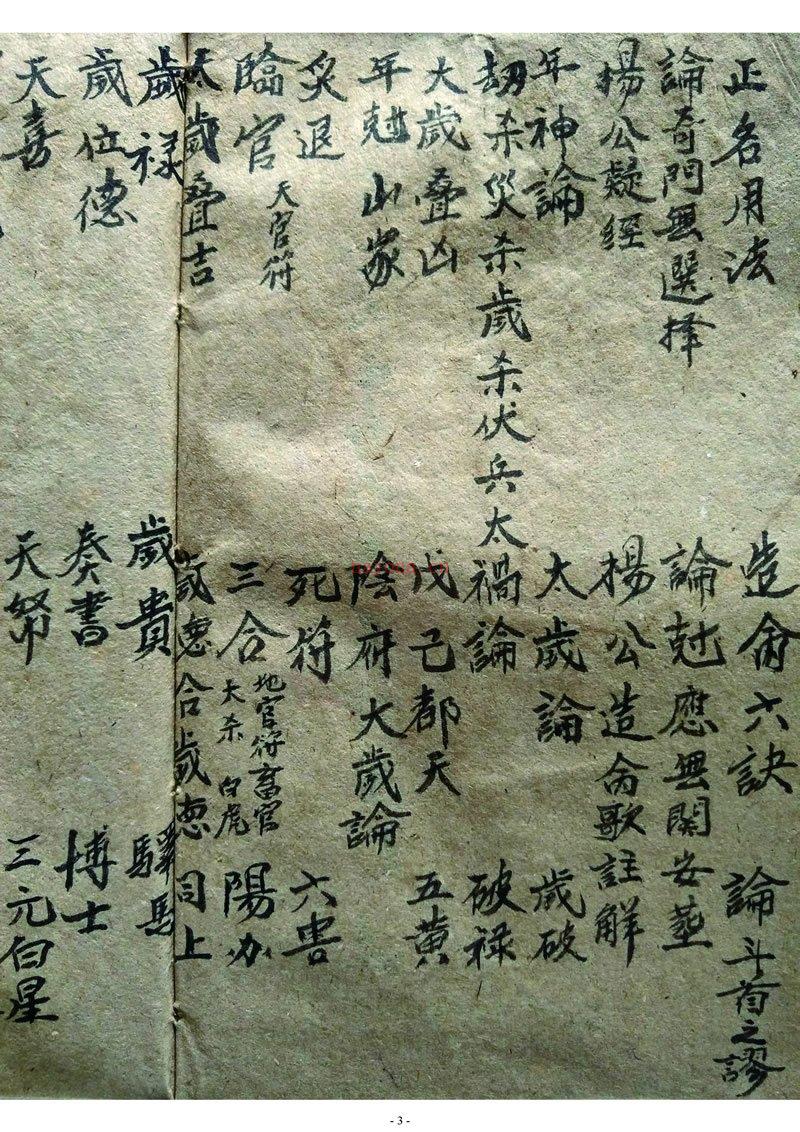 正名用法 造命六訣 論斗首之謬
論奇門無選择 論尅應無関安塟
楊公疑經 楊公造命歌註解
年神論 太歲論 歲破
劫杀災杀歲杀伏兵太禍論 破禄
大歲叠凶 戊己都天 五黄
年尅山家 陰府大歲論
炙退 死符 六害
臨官 天官符 三合 地官符畜官 大杀 白虎 陽刃
太歲叠吉 歲悳合歲悳同上
歲禄 歲貴 驛馬
歲位德 奏書 博士
天喜 天帑 三元白星
- 3 -